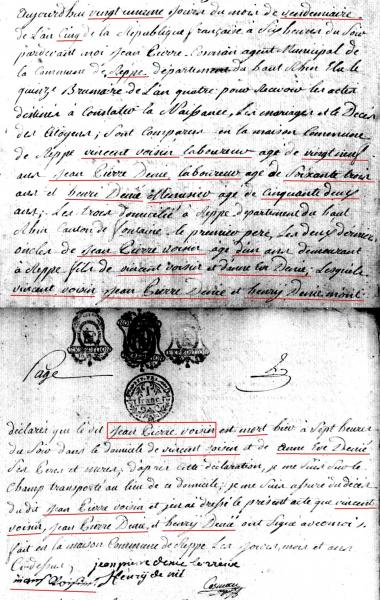 aujourd'hui vingt unieme jours du mois de vendemiaire
de L'an Cinq de la Republique française a Six heures du Soir
pardevant moi Jean Pierre agent Municipal de
la Commune de Reppe departement du haut Rhin Elu le
quinze Brumaire de L'an quatre pour Recevoir les actes
destinés a Constater la Naissance, Les mariages et le Décès
des Citoyens; Sont Comparus en la maison Commune
de Reppe vincent voisin laboureur age de vingt neuf
ans Jean Pierre Denié laboureur age de Soixante trois
ans et henri Denié age de Cinquante deux
ans; Les trois domicilié a Reppe departement du haut
Rhin Canton de fontaine, le premier pere, Les deux derniers
oncles de Jean Pierre voisin agé d'un ans demeurant
a Reppe fils de vincent voisin et d'anne Eve Denié, Lesquels
vincent voisin Jean Pierre Denié et henry Denié m'ont
Page
declarés que le dit Jean Pierre voisin est mort hier a Sept heures
du Soir dans le domicile de vincent voisin et de anne Eve Denié
Ses Peres et meres; d'apres Cette déclaration, je me Suis Sur le
Champ transporté au lieu de ce domicile; je me Suis assuré du décès
du dit Jean Pierre voisin et j'en ai dressé le présent acte que vincent
voisin, Jean Pierre Denié, et henry Denié ont Signé avec moi;
fait en la maison Commune de Reppe Les jours, mois et ans
Cidessus,
jean pierre denie
Henry denié